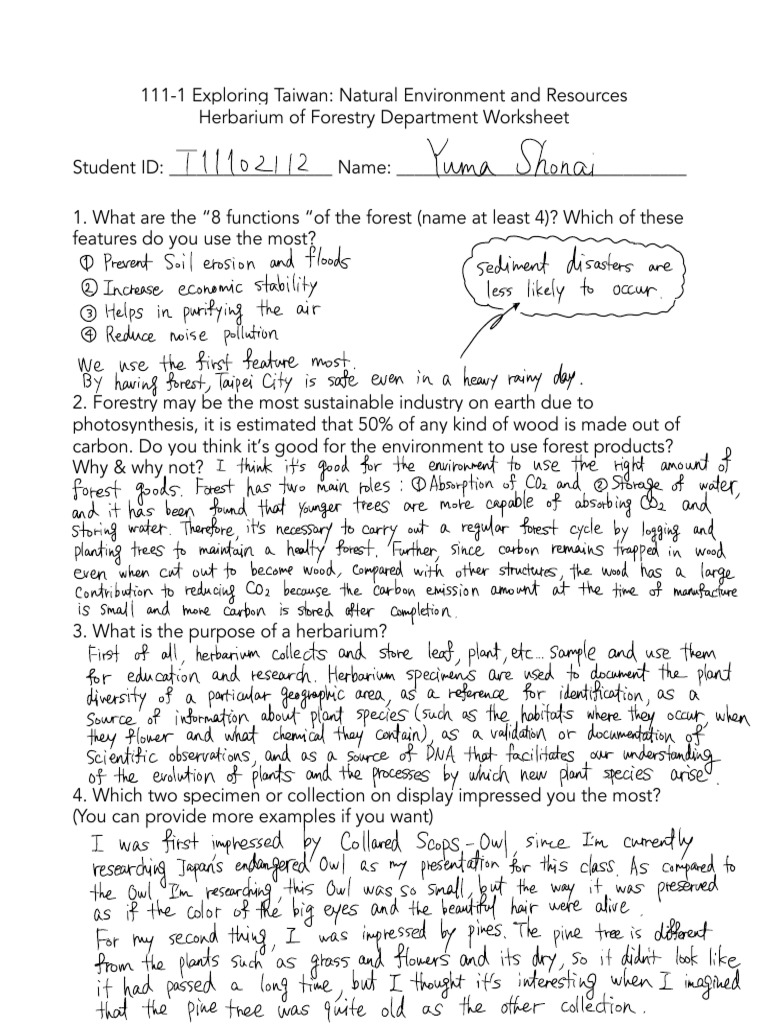 111-1 Exploring Taiwan: Natural Environment and Resources
Herbarium of Forestry Department Worksheet
Student ID: T11102112 Name: Yuma Shonai
1. What are the "8 functions "of the forest (name at least 4)? Which of these
features do you use the most?
① Prevent Soil erosion and floods
② Increase economic stability
③ Helps in purifying the air
④ Reduce noise pollution
sediment disasters are
less likely to occur.
We use the first feature most.
By having forest, Taipei City is safe even in a heavy rainy day.
2. Forestry may be the most sustainable industry on earth due to
photosynthesis, it is estimated that 50% of any kind of wood is made out of
carbon. Do you think it's good for the environment to use forest products?
Why & why not? I think it's good for the environment to use the right amount of
forest goods. Forest has two main roles : ① Absorption of CO2 and ② Storage of water,
and it has been found that younger trees are more capable of absorbing CO2 and
storing water. Therefore, it's necessary to carry out a regular forest cycle by logging and
planting trees to maintain a healty forest. Further, since carbon remains trapped in wood
even when cut out to become wood, compared with other structures, the wood has a large
contribution to reducing CO2 because the carbon emission amount at the time of manufacture
is small and more carbon is stored after completion.
3. What is the purpose of a herbarium?
First of all, herbarium collects and store leaf, plant, etc... sample and use them
for education and research. Herbarium specimens are used to document the plant
diversity of a particular geographic area, as a reference for identification, as a
source of information about plant species (such as the habitats where they occur, when
they flower and what chemical they contain), as a validation or documentation of
scientific observations, and as a source of DNA that facilitates our understanding
of the evolution of plants and the processes by which new plant species arise.
4. Which two specimen or collection on display impressed you the most?
(You can provide more examples if you want)
I was first imphressed by Collared Scops-Owl, since I'm currently
researching Japan's endangered Owl as my presentation for this class. As compared to
the Owl I'm researching, this Owl was so small, but the way it was preserved
as if the color of the big eyes and the beautiful hair were alive.
For my second thing, I was impressed by pines. The pine tree is different
from the plants such as grass and flowers and its dry, so it didn't look like
it had passed a long time, but I thought it's interesting when I imagined
that the pine tree was quite old as the other collection.